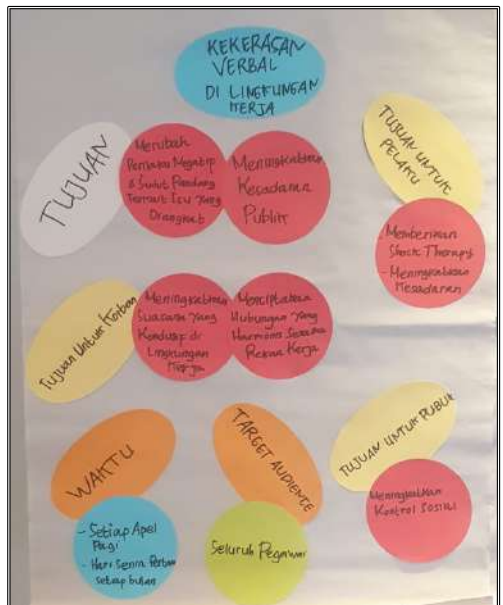 KEKERASAN
VERBAL
DI LINGKUNGAN
KERJA
TUJUAN
Merubah
Perilaku Negatip
& Sudut Pandang
Terkait Isu Yang
Diangkat
Meningkatkan
Kesadaran
Publik
TUJUAN UNTUK
PELAKU
Memberikan
Shock Therapy
- Meningkatkan
Kesadaran
Tujuan Untuk Korban
Meningkatkan
Suasana Yang
Kondusif di
Lingkungan
Kerja
Menciptakan
Hubungan Yang
Harmonis Sesama
Rekan Kerja
WAKTU
- Setiap Apel
Pagi
- Hari Senin Pertama
setiap bulan
TARGET AUDIENCE
Seluruh Pegawai
TUJUAN UNTUK PUBLIK
Meningkatkan
Kontrol Sosial